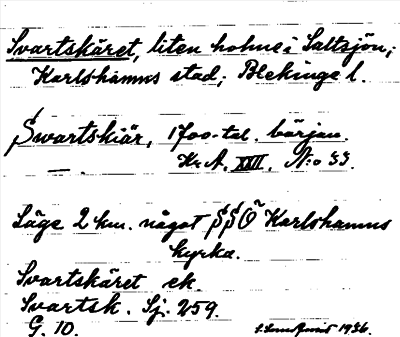 Svartskäret, liten holme i Saltsjön;
Karlshamns stad; Blekinge l.
Swartskiär, 1700-tal. början.
Kr. A. XXII. N:o 33.
Läge 2 km. något SSO Karlshamns
kyrka.
Svartskäret ek.
Svartsk. Sj. 259.
G. 10.
1936.